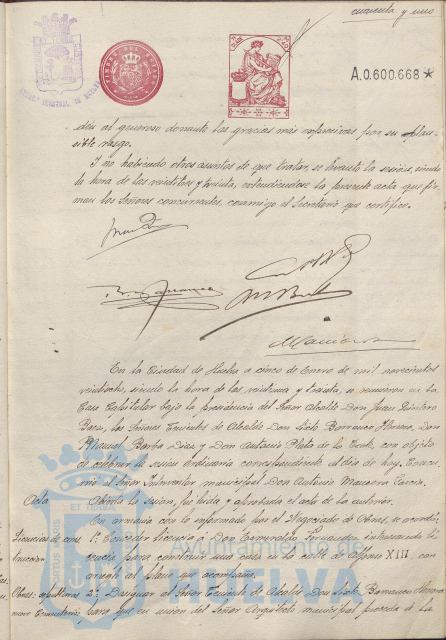 cuarenta y uno
A.0.600.668*
dén al generoso donante las gracias más expresivas por su plausible rasgo.
Y no habiendo otros asuntos de que tratar, se levantó la sesión, siendo
la hora de las veintidos y treinta, extendiéndose la presente acta que fir-
man los Señores concurrentes, conmigo el Secretario que certifico.
En la Ciudad de Huelva a cinco de Enero de mil novecientos
veintiocho, siendo la hora de las veintiuna y treinta, se reunieron en la
Casa Capitular bajo la presidencia del Señor Alcalde Don Juan Quintero
Baez, los Señores Tenientes de Alcalde Don José Barranco Moreno, Don
Manuel Barba Diaz y Don Antonio Plata de la Corte, con objeto
de celebrar la sesión ordinaria correspondiente al día de hoy. Concu-
rrió el Señor Interventor municipal Don Antonio
Acta Abierta la sesión, fué leída y aprobada el acta de la anterior.
En armonía con lo informado por el Negociado de Obras, se acordó:
Licencia de cons- 1º Conceder licencia a Don Esmeraldo Fernandez, interesando li-
trucción cencia para construir una casa en la calle de Alfonso XIII con
arreglo al plano que acompaña.
2º Designar al Señor Teniente de Alcalde Don José Barranco Moreno
para que en unión del Señor Arquitecto municipal proceda a la
Ayuntamiento de
HUELVA